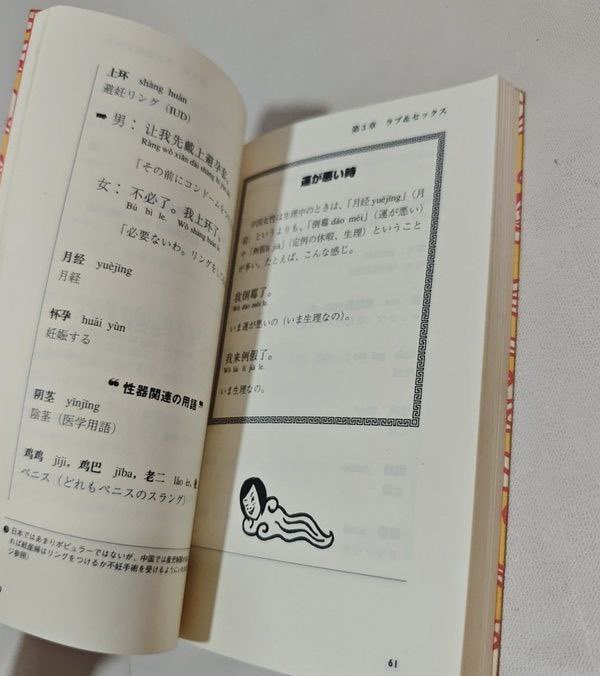 上环 shàng huán
避妊リング（IUD）
男：让我先戴上避孕套
Ràng wǒ xiān dài shàng bì yùn
「その前にコンドームをつ
女：不必了。我上环了。
Bú bì le. Wǒ shàng huán
「必要ないわ。リングをし
月经 yuèjīng
月経
怀孕 huái yùn
妊娠する
❝性器関連の用語❞
阴茎 yīnjīng
陰茎（医学用語）
鸡鸡 jījī，鸡巴 jība，老二 lǎo èr，
ペニス（どれもペニスのスラング）
日本ではあまりポピュラーではないが、中国では産児制限の
れば経産婦はリングをつけるか不妊手術を受けるように
ジ参照）
第3章 ラブ&セックス
運が悪い時
中国女性は生理中のときは、「月经 yuèjīng」（月
経）というよりも、「倒霉 dǎo méi」（運が悪い）
や「例假 lì jià」（定例の休暇、生理）ということ
が多い。たとえば、こんな感じ。
我倒霉了。
Wǒ dǎo méi le.
いま運が悪いの（いま生理なの）。
我来例假了。
Wǒ lái lì jià le.
いま生理なの。
61